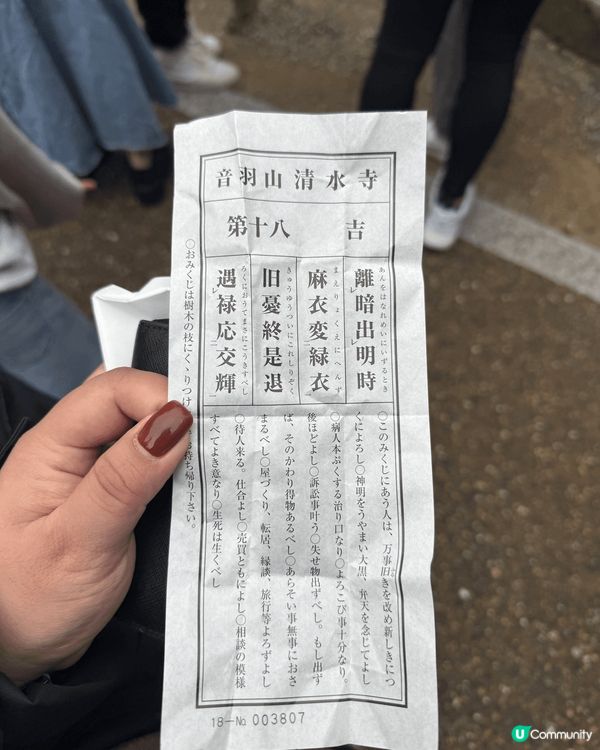 音羽山清水寺
第十八 吉
離暗出明時
あんをはなれめいにいずるとき
麻衣変緑衣
まえりょくえにへんず
旧憂終是退
きゅうゆうついにこれしりぞく
遇禄応交輝
ろくにおうてまさにこうきすべし
○このみくじにあう人は、万事旧きを改め新しきにつ
くによろし○神明をうやまい大黒、弁天を念じてよし
○病人本ぷくする治り口なり○よろこび事十分なり。
後ほどよし○訴訟事叶う○失せ物出ずべし。もし出ず
ば、そのかわり得物あるべし○あらそい事無事におさ
まるべし○屋づくり、転居、縁談、旅行等よろずよし
○待人来る。仕合よし○売買ともによし○相談の模様
すべてよき意なり○生死は生くべし
○おみくじは樹木の枝にくゝりつけ
持ち帰り下さい。
18-No 003807
U Community